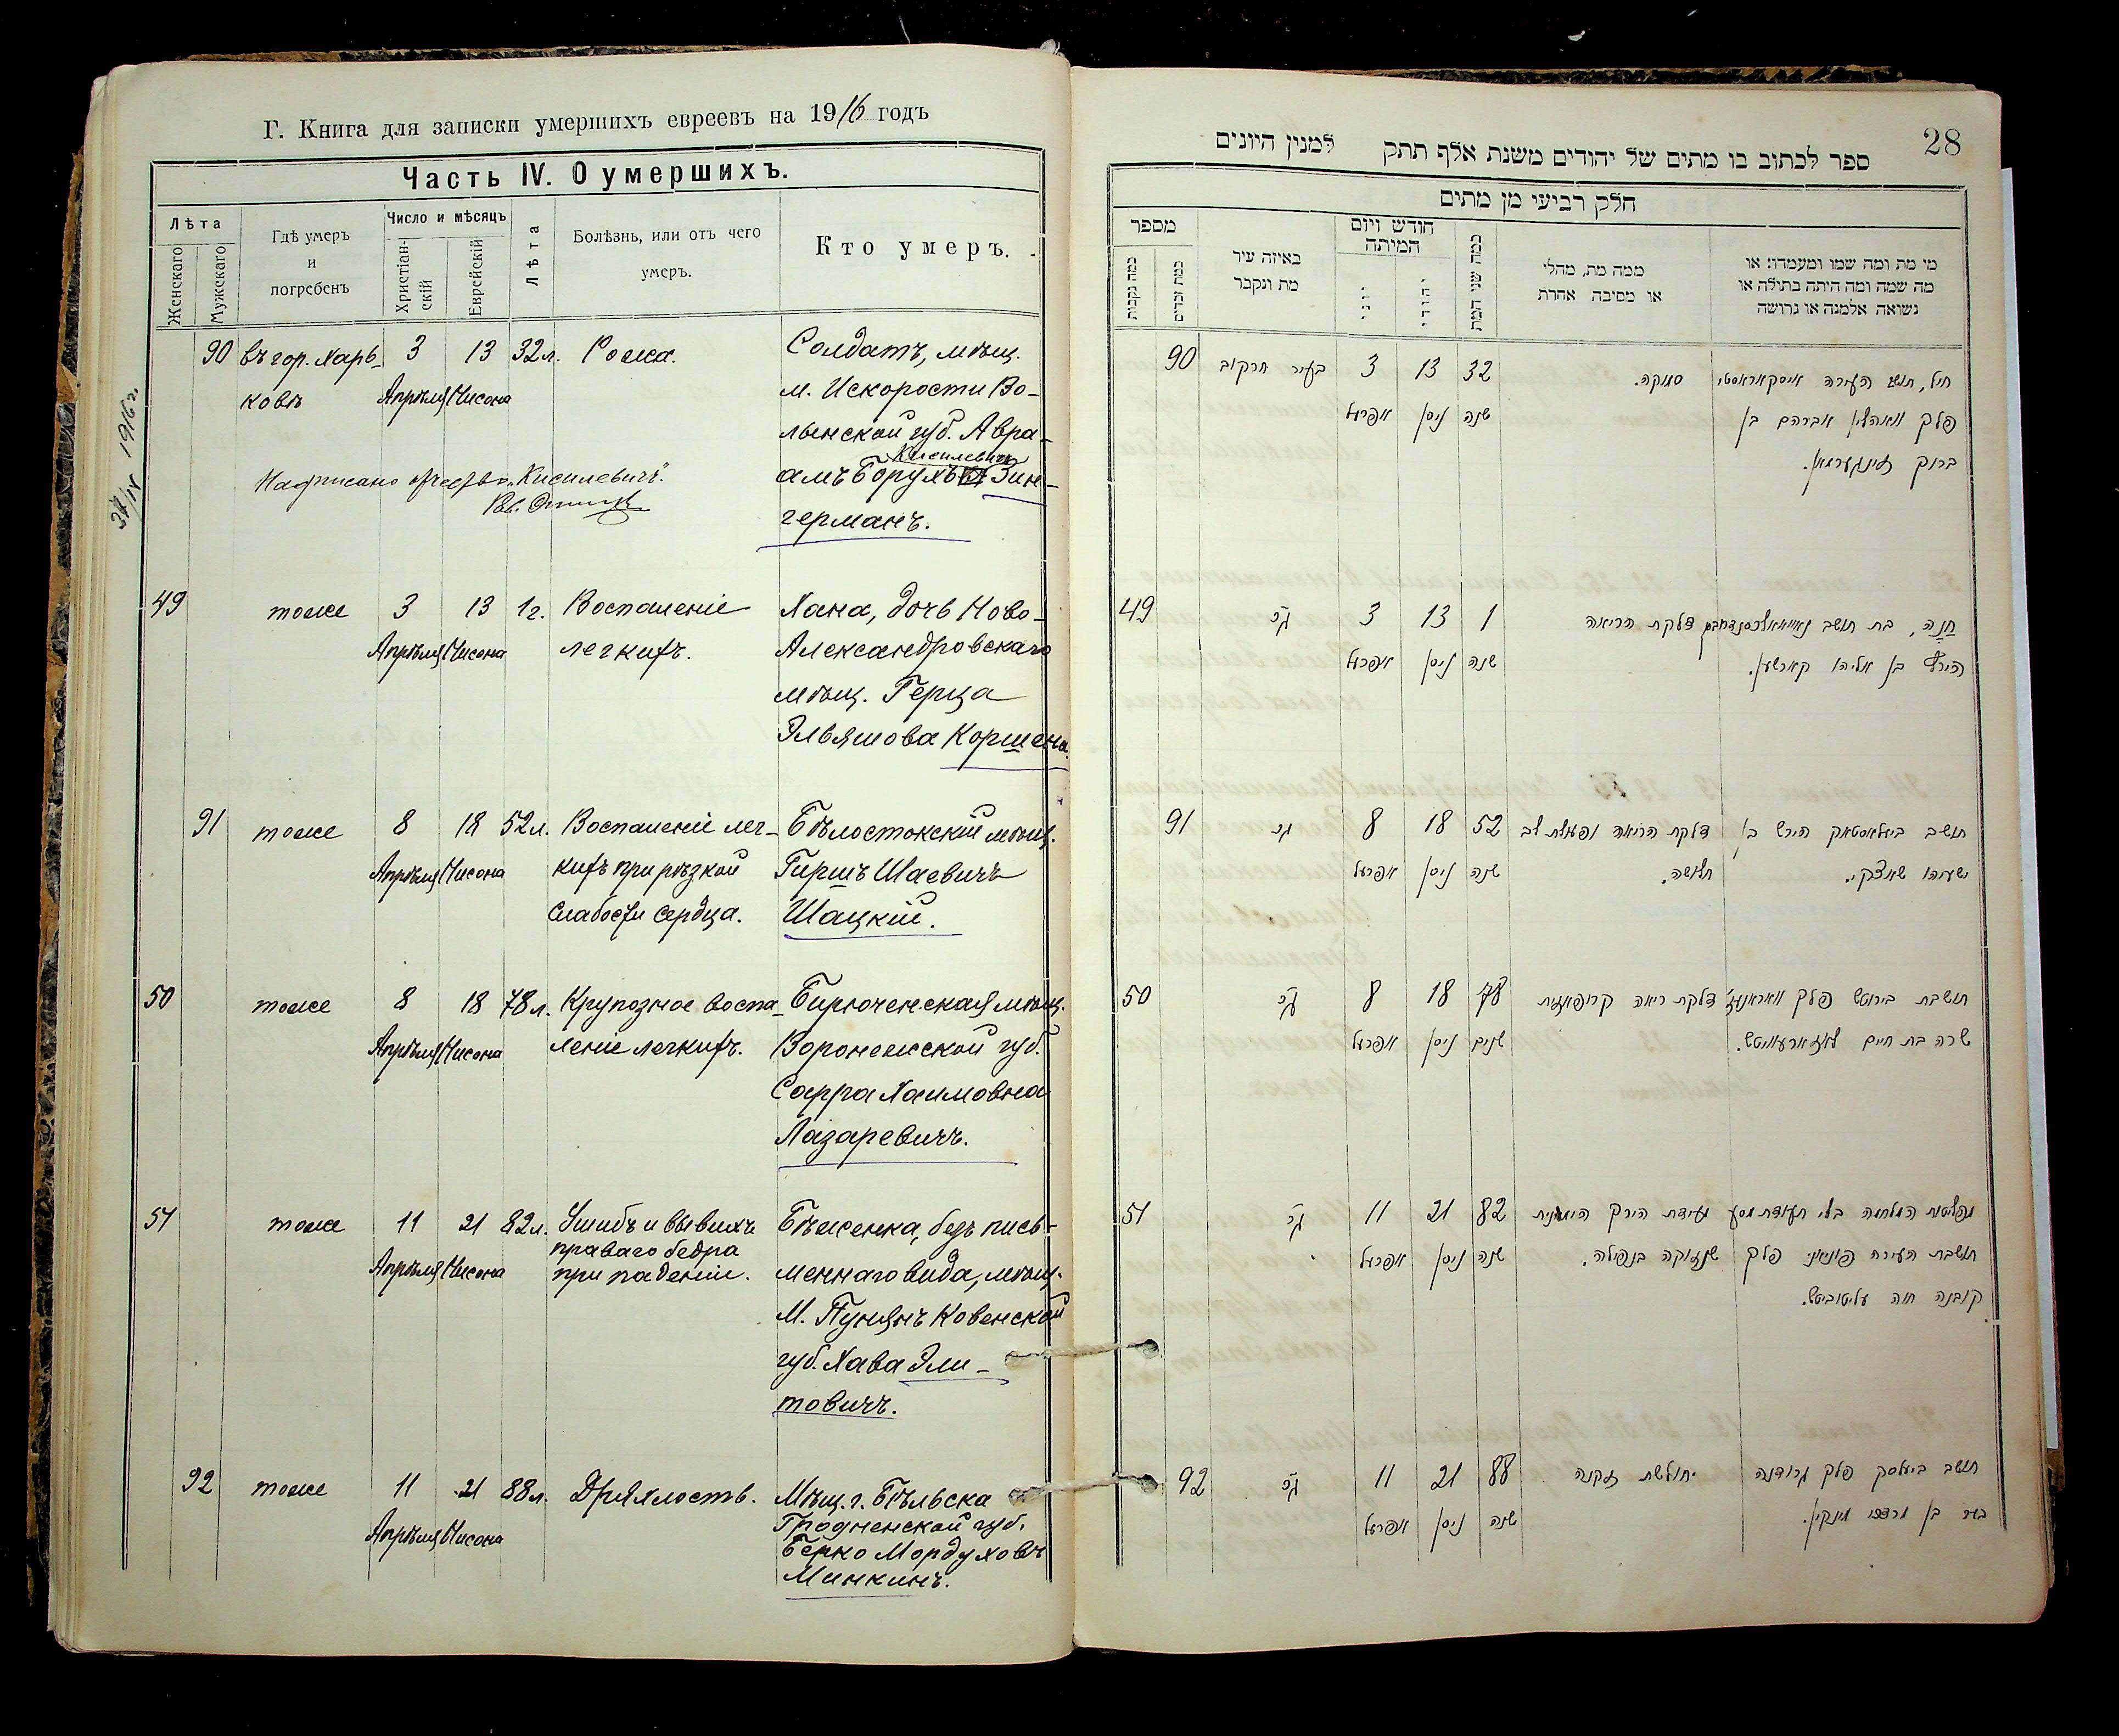 Г. Книга для записки умершихъ евреевъ на 1916 годъ
Часть IV. О умершихъ.
Лѣта
Женскаго
Мужескаго
Гдѣ умеръ
и
погребенъ
Число и мѣсяцъ
Христіан-
скій
Еврейскій
Лѣта
Болѣзнь, или отъ чего
умеръ.
Кто умеръ.
90 въ гор. Харь- 3 13 32 л. Рожа. Солдатъ, мѣщ.
ковѣ Апрѣля Нисона м. Искорости Во-
лынской губ. Авра-
Кисилевичъ
амъ Борухъ Зин-
германъ.
Надписано отчество „Кисилевичъ“.
1916 г.
49 тоже 3 13 1 г. Воспаленіе Хана, дочь Ново-
Апрѣля Нисона легкихъ. Александровскаго
мѣщ. Герца
Эльяшова Коршена.
91 тоже 8 18 52 л. Воспаленіе лег- Бѣлостокскій мѣщ.
Апрѣля Нисона кихъ при рѣзкой Гиршъ Шаевичъ
слабости сердца. Шацкій.
50 тоже 8 18 78 л. Крупозное воспа- Бирюченская мѣщ.
Апрѣля Нисона леніе легкихъ. Воронежской губ.
Сарра Хаимовна
Лазаревичъ.
51 тоже 11 21 82 л. Ушибъ и вывихъ Бѣженка, безъ пись-
праваго бедра
Апрѣля Нисона при паденіи. меннаго вида, мѣщ.
М. Пунянъ Ковенской
губ. Хава Эли-
товичъ.
92 тоже 11 21 88 л. Дряхлость. Мѣщ. г. Бѣльска
Апрѣля Нисона Гродненской губ.
Берко Мордуховъ
Минкинъ.
28
ספר לכתוב בו מתים של יהודים משנת אלף תתק למנין היונים
חלק רביעי מן מתים
מי מת ומה שמו ומעמדו: או
מה שמה ומה היתה בתולה או
נשואה אלמנה או גרושה
ממה מת, מחלי
או מסיבה אחרת
כמה שני המת
חודש ויום
המיתה
יהודי
יוני
באיזה עיר
מת ונקבר
מספר
כמה זכרים
כמה נקבות
חיל, תושב העירה איסקאראסטי סמוקה. 32 13 3 בעיר חרקוב 90
פלך וואהלין אברהם בן שנה ניסן אפריל
ברוך זינגערמאן.
חנה, בת תושב דלקת הריאה 1 13 3 49
הירץ בן אליהו קארשען. שנה ניסן אפריל
תושב ביאלאסטאק הירש בן דלקת הריאה ופעולת לב 52 18 8 91
ישעיהו שאצקי. חלושה. שנה ניסן אפריל
תושבת בירוטש פלך דלקת ריאה קרופאזית 78 18 8 50
שרה בת חיים לאזארעוויטש. שנים ניסן אפריל
מפליטות המלחמה בלי תעודת מסע הירך הימנית 82 21 11 51
תושבת העירה פוניאני פלך שנזוקה בנפילה. שנה ניסן אפריל
קובנה חוה עליטוביטש.
תושב ביעלסק פלך גרודנה חולשת זקנה 88 21 11 92
בער בן מרדכי מינקין. שנה ניסן אפריל